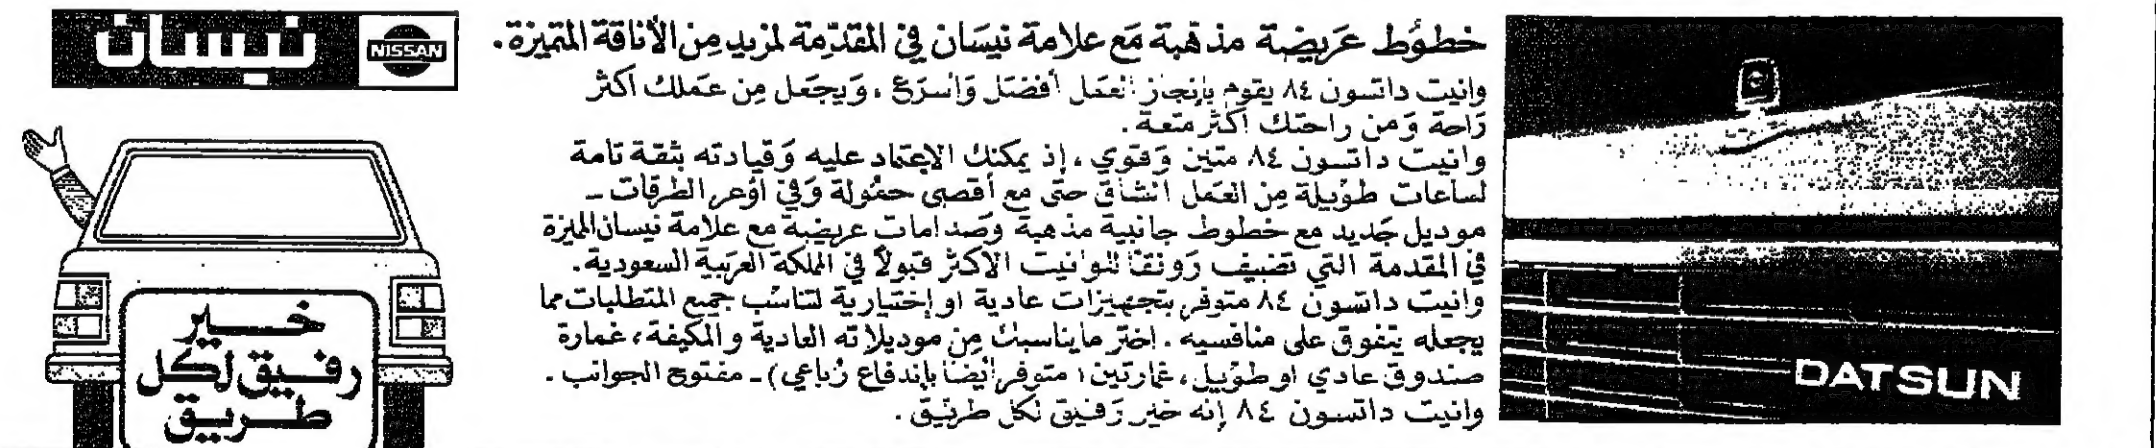 نيسان
NISSAN
خطوط عريضة مذهبة مع علامة نيسان في المقدّمة لمزيد من الأناقة المتميزة.
وانيت داتسون ٨٤ يقوم بإنجاز العمل أفضل وأسرع ، ويجعل من عملك أكثر
راحة ومن راحتك أكثر متعة .
وانيت داتسون ٨٤ متين وقوي ، إذ يمكنك الإعتماد عليه وقيادته بثقة تامة
لساعات طويلة من العمل الشاق حتى مع أقصى حمولة وفي أوعر الطرقات ــ
موديل جديد مع خطوط جانبية مذهبة وصدامات عريضة مع علامة نيسان المميزة
في المقدمة التي تضيف رونقاً للوانيت الأكثر قبولاً في المملكة العربية السعودية .
وانيت داتسون ٨٤ متوفر بتجهيزات عادية او إختيارية لتناسب جميع المتطلبات مما
يجعله يتفوق على منافسيه . اختر مايناسبك من موديلاته العادية و المكيفة ، غمارة
صندوق عادي او طويل ، غمارتين ( متوفر أيضاً بإندفاع رباعي ) ــ مفتوح الجوانب .
وانيت داتسون ٨٤ إنه خير رفيق لكل طريق .
خير
رفيق لكل
طريق
DATSUN